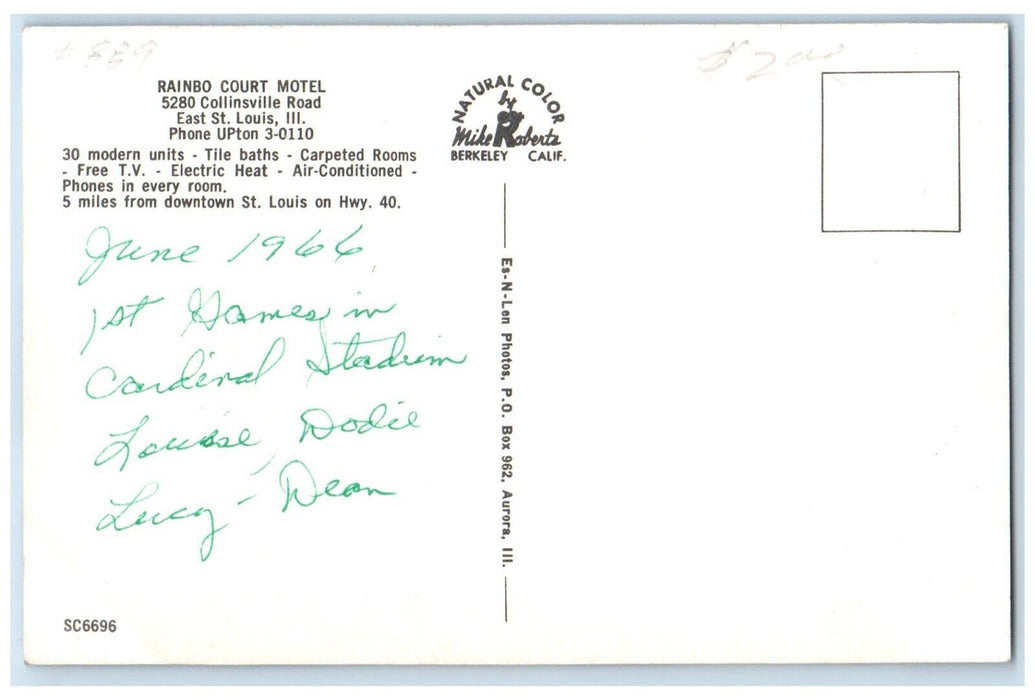 #889
$200
RAINBO COURT MOTEL
5280 Collinsville Road
East St. Louis, Ill.
Phone UPton 3-0110
30 modern units - Tile baths - Carpeted Rooms
- Free T.V. - Electric Heat - Air-Conditioned -
Phones in every room.
5 miles from downtown St. Louis on Hwy. 40.
June 1966
1st Games in
Cardinal Stadium
Louise, Dodie
Lucy - Dean
SC6696
NATURAL COLOR
by
Mike Roberts
BERKELEY CALIF.
Es-N-Len Photos, P.O. Box 962, Aurora, Ill.